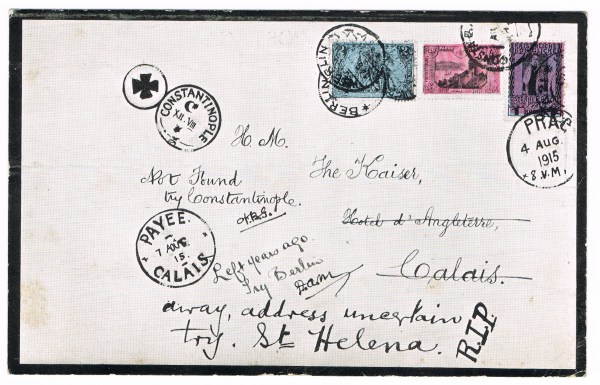 BERLIN
CONSTANTINOPLE
XII. VIII
H. M.
The Kaiser,
Hotel d'Angleterre,
Calais.
PRAG
4 AUG.
1915
* 8.V.M.
Not Found
try Constantinople.
PAYEE
7 AUG
15.
CALAIS
Left years ago.
Try Berlin
Dam
away, address uncertain
try. St Helena.
R.I.P